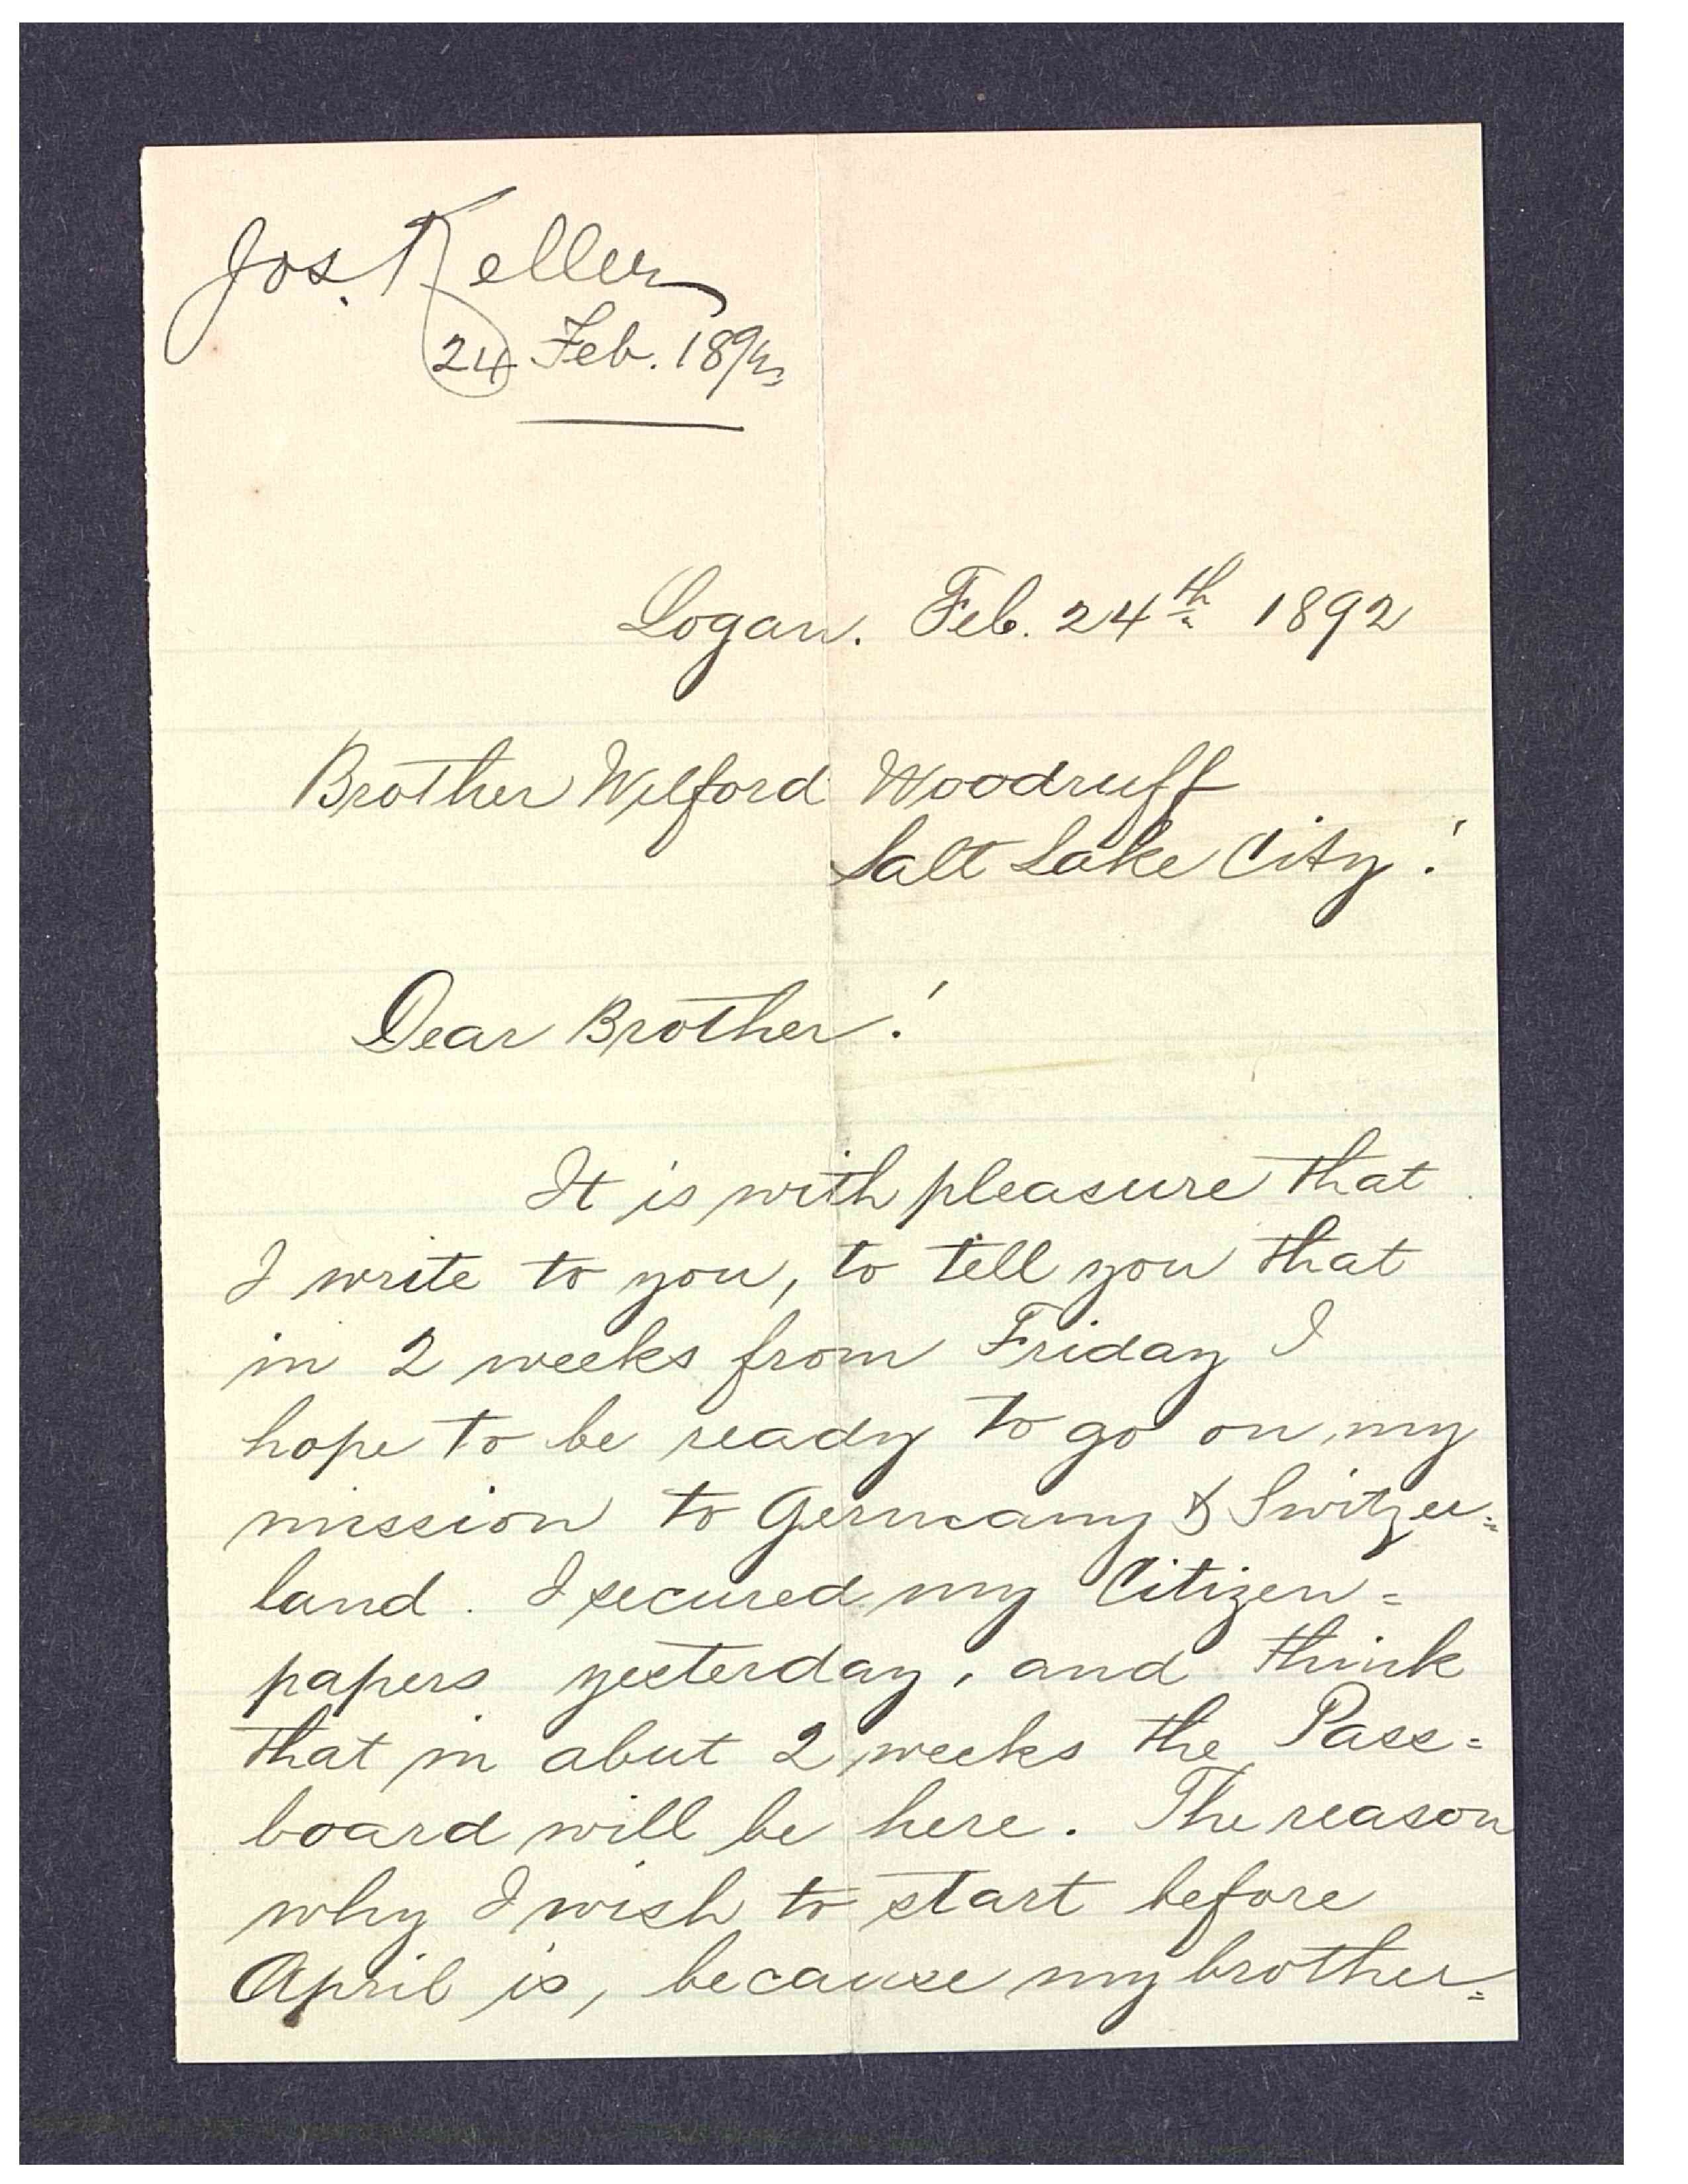 Jos. Keller
24 Feb. 1892
Logan. Feb. 24th 1892
Brother Wilford Woodruff
Salt Lake City!
Dear Brother!
It is with pleasure that
I write to you, to tell you that
in 2 weeks from Friday I
hope to be ready to go on my
mission to Germany & Switzer=
land. I secured my Citizen=
papers yesterday, and think
that in abut 2 weeks the Pass=
board will be here. The reason
why I wish to start before
April is, because my brother=